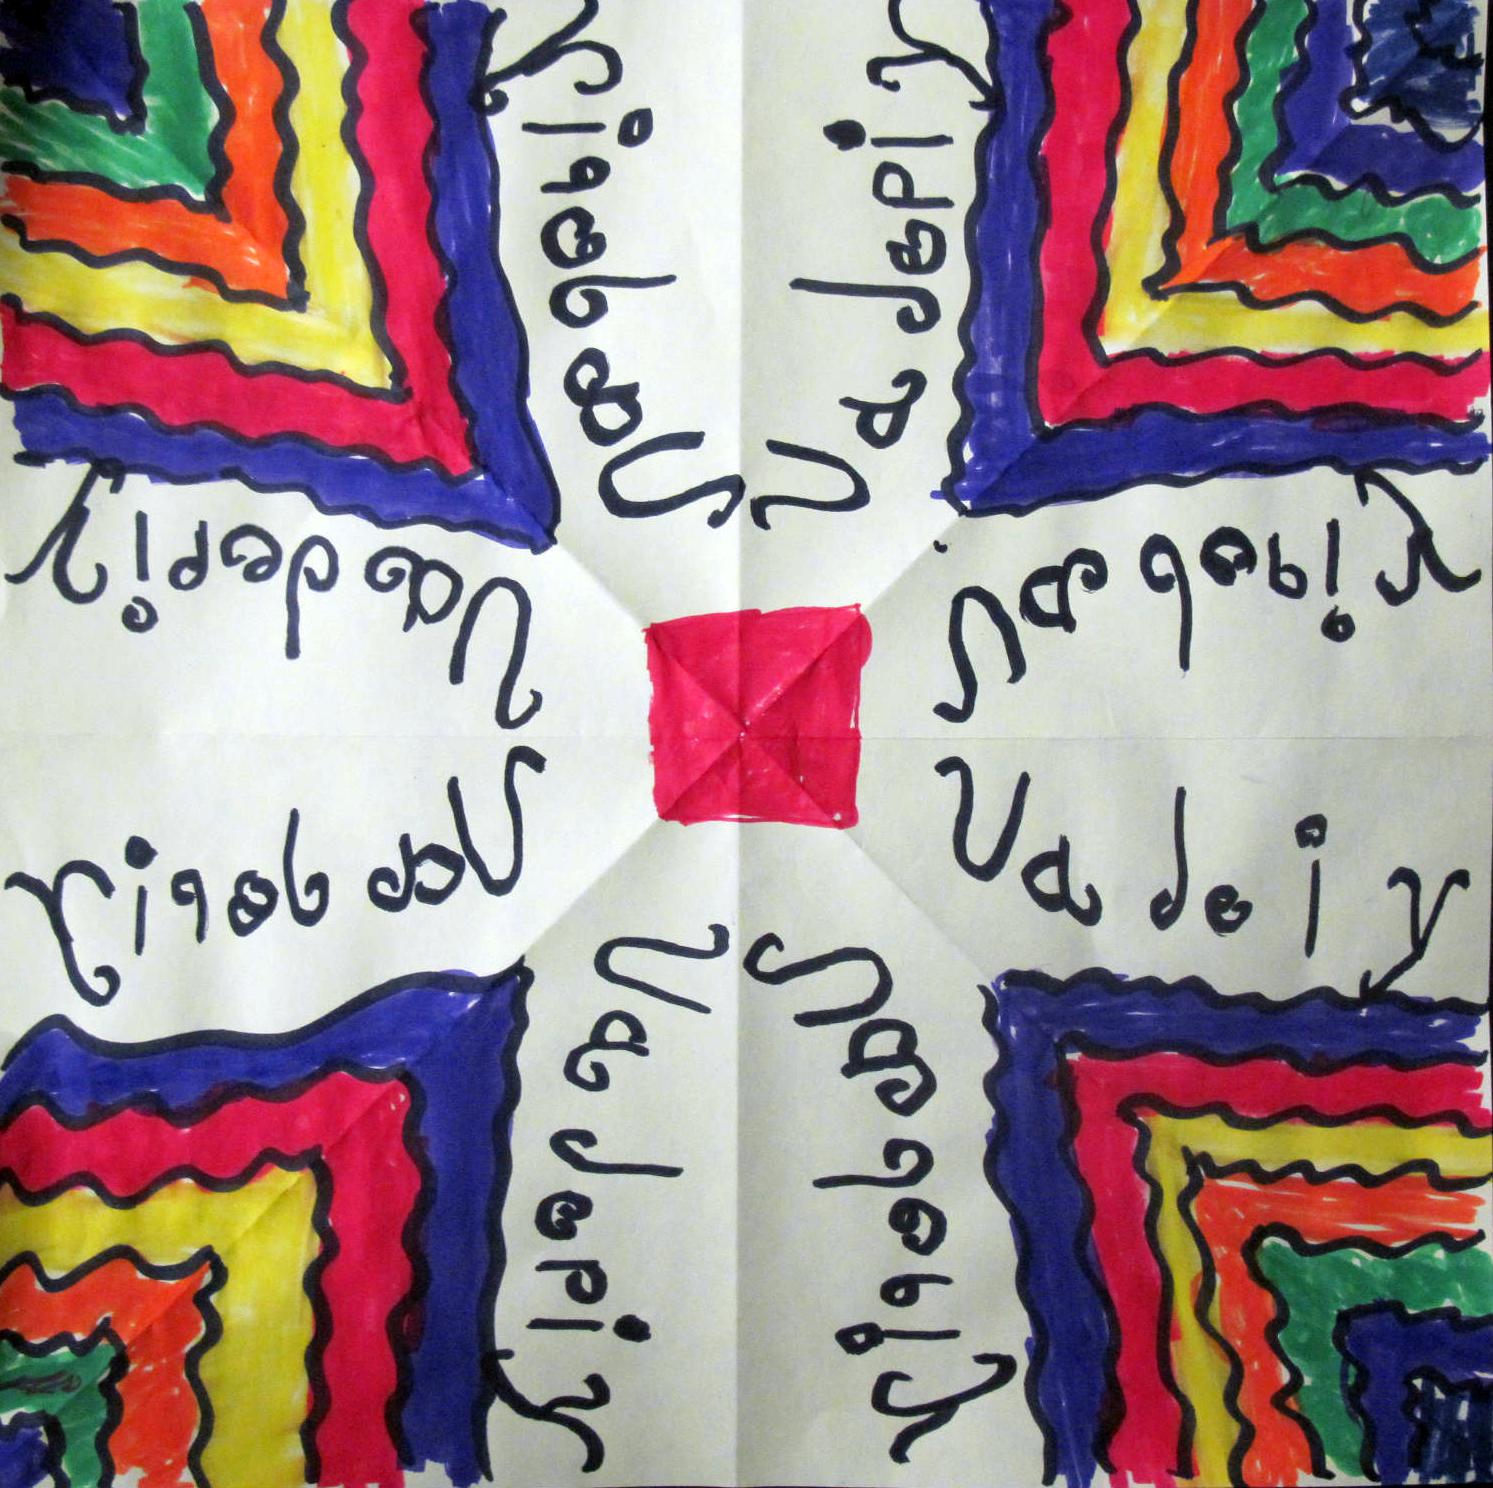 Vadepiy
Vadepiy
Vadepiy
Vadepiy
Vadepiy
Vadeiy
Vadepiy
Vadepiy